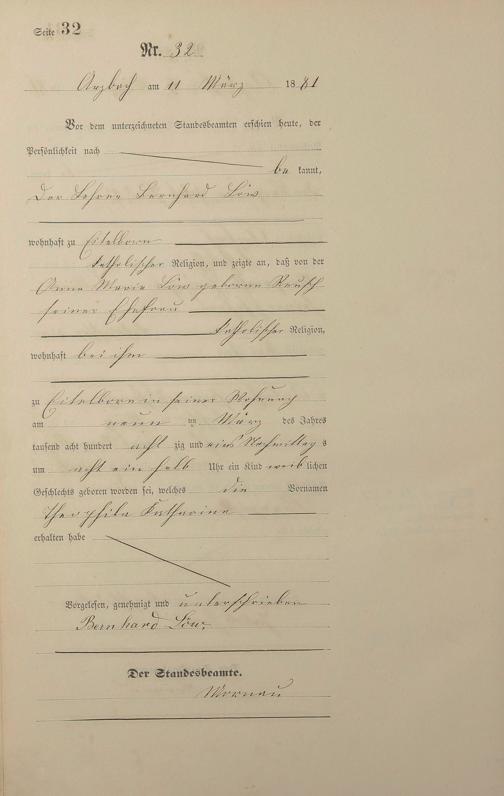 Seite 32
Nr. 32
Arzbach am 11 März 1881
Vor dem unterzeichneten Standesbeamten erschien heute, der
Persönlichkeit nach
be kannt,
Der Lehrer Bernhard Löw
wohnhaft zu Eitelborn
katholischer Religion, und zeigte an, daß von der
Anna Maria Löw geborene Reusch
seiner Ehefrau
katholischer Religion,
wohnhaft bei ihm
zu Eitelborn in seiner Wohnung
am neun ten März des Jahres
tausend acht hundert acht zig und eins Nachmittag s
um acht ein halb Uhr ein Kind weib lichen
Geschlechts geboren worden sei, welches die Vornamen
Theophila Katharina
erhalten habe
Vorgelesen, genehmigt und unterschrieben
Bernhard Löw
Der Standesbeamte.